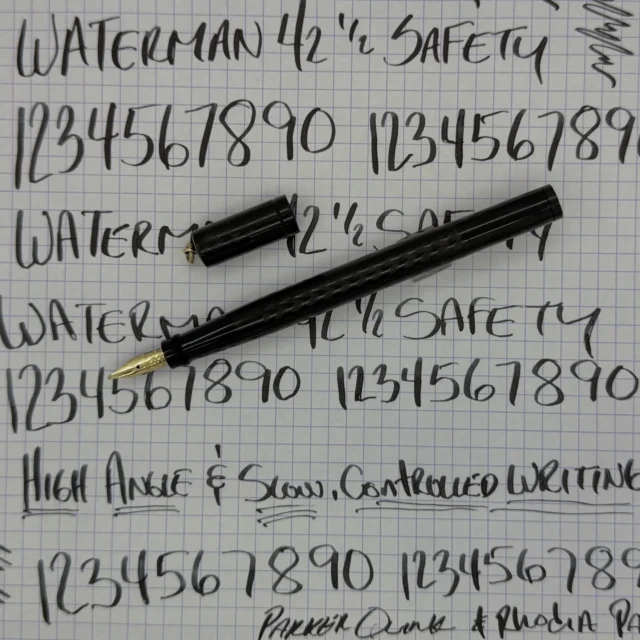 WATERMAN 42 1/2 SAFETY
1234567890 123456789
WATERM 42 1/2 SAFETY
WATERMAN 42 1/2 SAFETY
1234567890 1234567890
HIGH ANGLE & SLOW, CONTROLLED WRITING
1234567890 123456789
PARKER QUINK & RHODIA